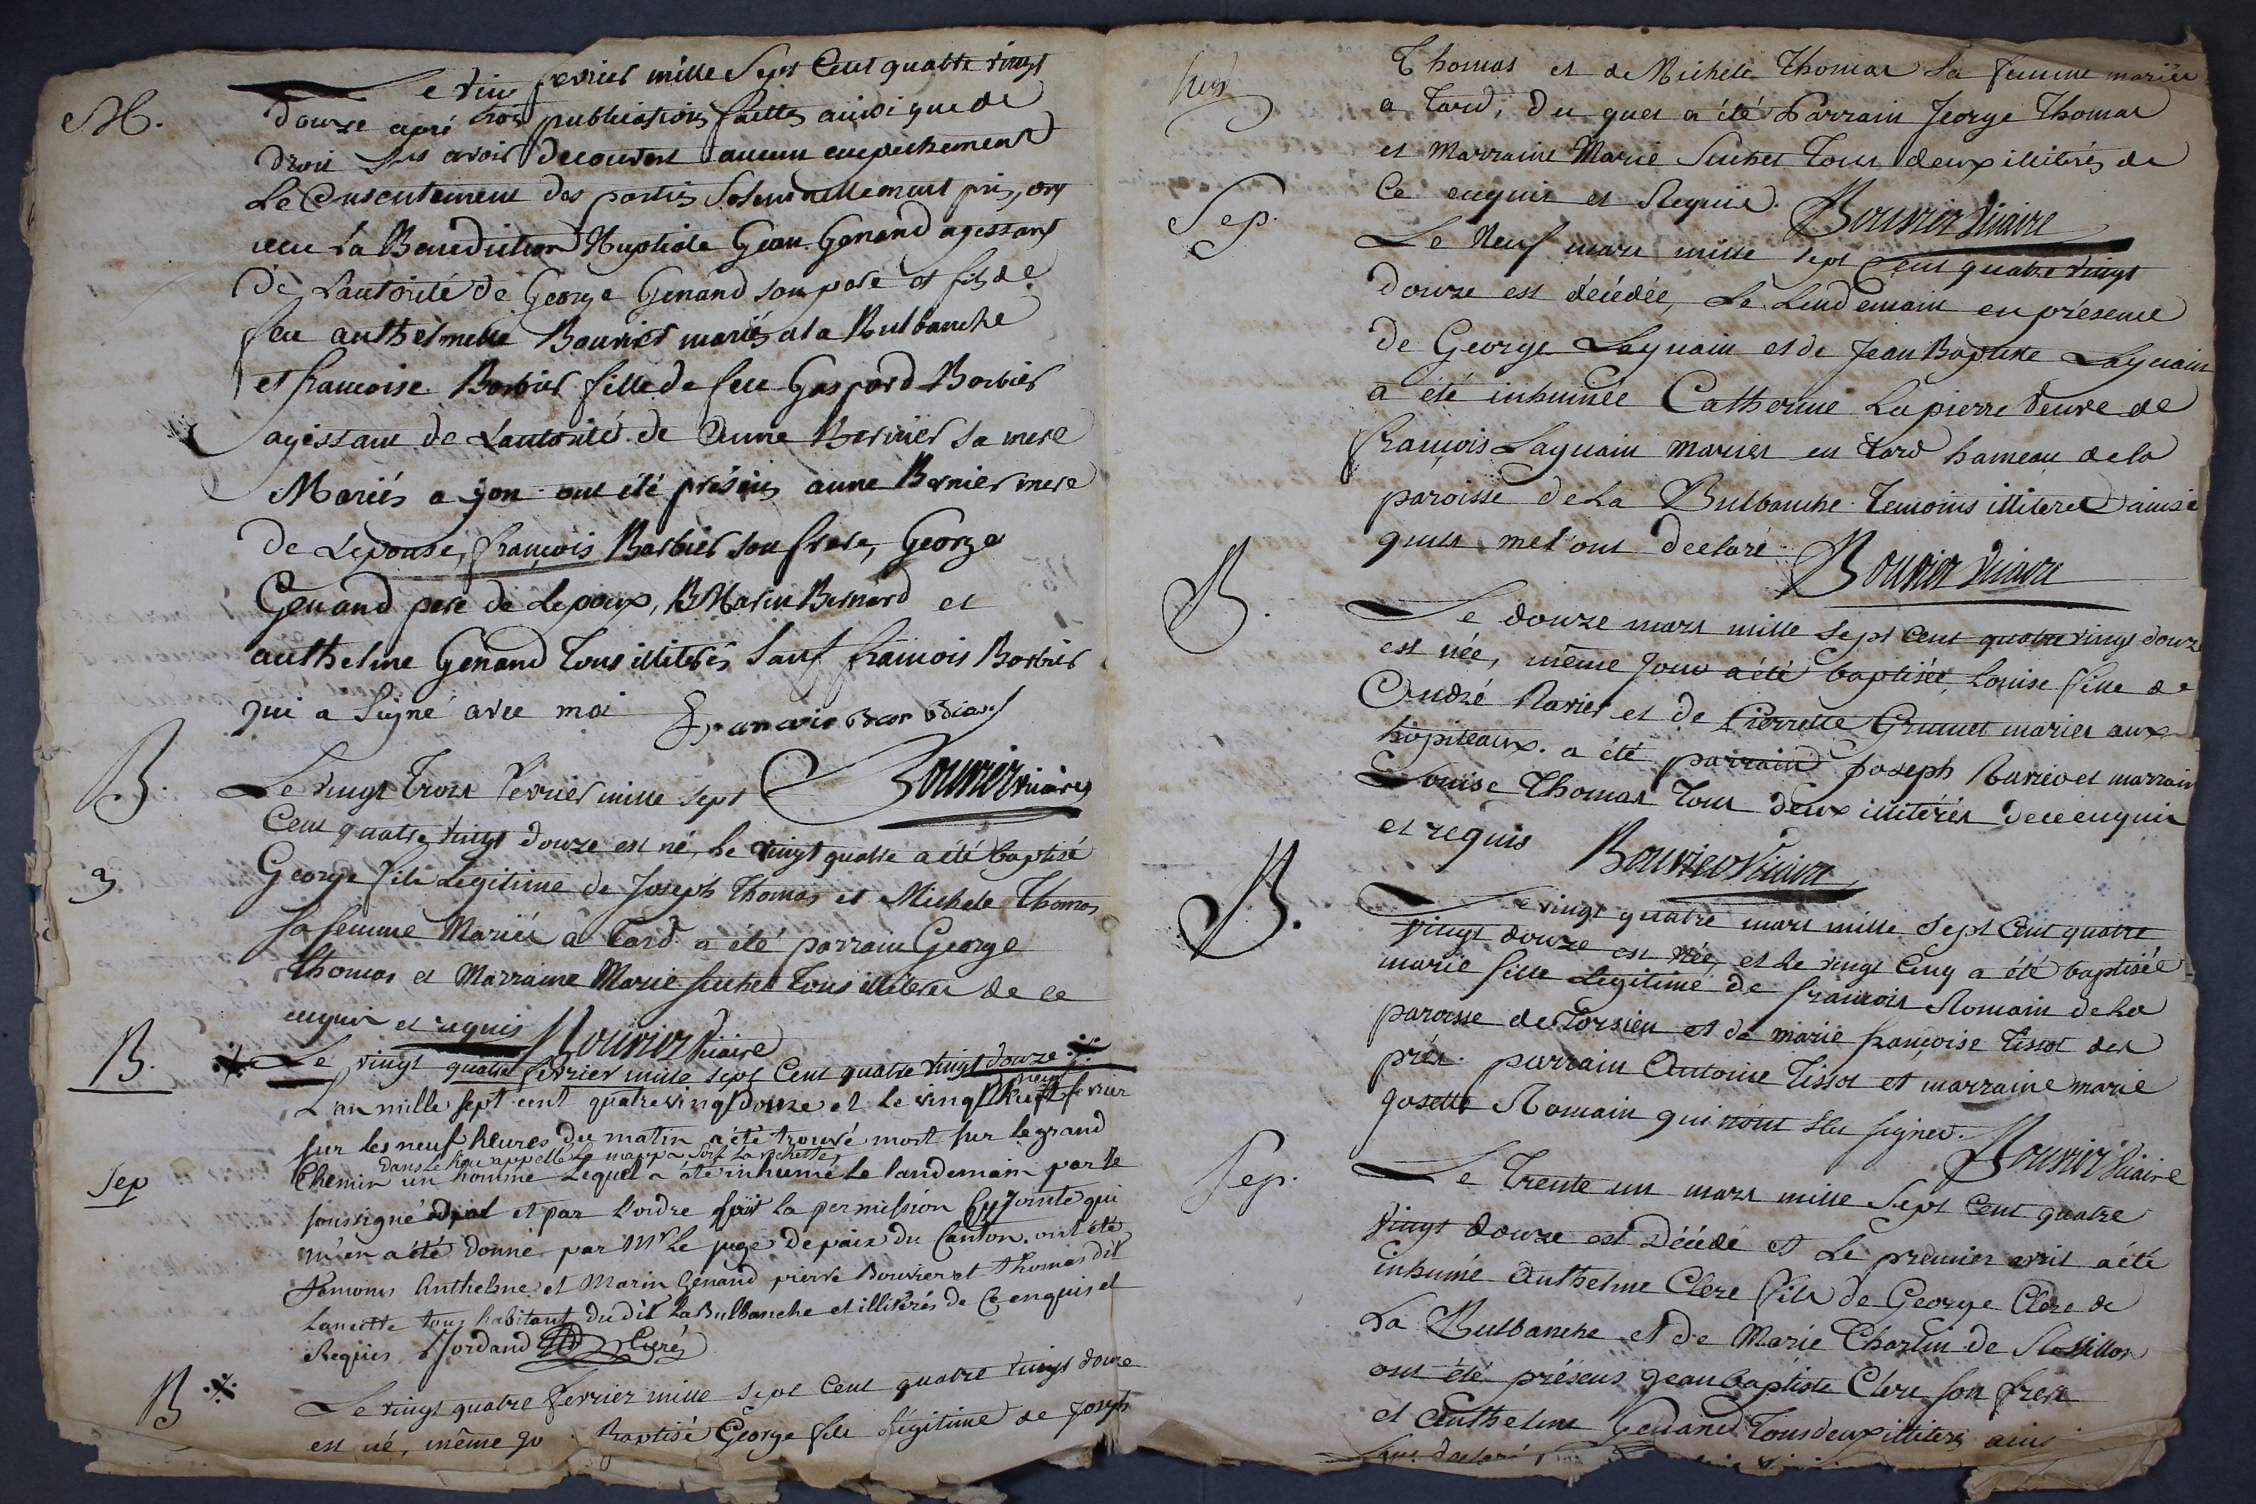 M.
Le vin fevrier mille Sept Cent quatre vingt
douze apré trois publications faittes ainsi que de
droit sans avoir decouvert aucun empechement
Le Consentement des partis Solennellement pris, ont
recu La Benediction Nuptiale Gean Genand agissant
de Lautorité de George Genand son pere et fils de
feu anthelmette Bouvier mariés a la Bulbanche
et francoise Barbier fille de feu Gaspard Barbier
agissant de Lautorité de Anne Bernier sa mere
Mariés a yon ont été présens anne Bernier mere
de Lepouse, françois Barbier son frere, George
Genand pere de Lepoux, Marin Bernard et
anthelme Genand tous illiterés Sauf francois Barbier
qui a Signé avec moi francois Barbier
Bouvier vicaire
B.
Le vingt trois fevrier mille sept
Cent quatre vingt douze est né, le vingt quatre a été baptisé
3
George fils Legitime de Joseph Thomas et Michele Thomas
sa femme Mariés a Tard a été parrain George
Thomas et Marraine Marie Suchet tous illiteres de ce
enquis et requis Bouvier Vicaire
B.
Le vingt quatre fevrier mille sept Cent quatre vingt douze
L'an mille sept cent quatre vingt douze et le vingt neuf fevrier
sur les neuf heures du matin a été trouvé mort sur le grand
dans le lieu appellé
Sep
Chemin un homme Lequel a été inhumé le landemain par le
soussigné et par l'ordre la permission Cy jointe qui
m'en a été donné par Mr Le juge de paix du Canton. ont été
temoins Anthelme et Marin Genand, pierre Bouvier et thomas dit
Lanette tous habitant dudit La Bulbanche et illiterés de Ce enquis et
Requis Curé
B
Le vingt quatre fevrier mille sept Cent quatre vingt douze
est né, même jo Baptisé George fils légitime de Joseph
Thomas et de Michele Thomas sa femme mariés
a Tard, du quel a été Parrain Jeorge Thomas
et Marraine Marie Suchet Tous deux illiterés de
Ce enquis et Requis. Bouvier Vicaire
Sep.
Le Neuf mars mille sept Cent quatre vingt
douze est décédée, Le Lendemain en présence
de George Laguain et de Jean Baptiste Laguain
a été inhumée Catherine Lapierre veuve de
françois Laguain mariés en tard hameau de la
paroisse de La Bulbanche Temoins illiteres ainsi
quils me l'ont declaré Bouvier Vicaire
B.
Le douze mars mille Sept Cent quatre vingt douze
est née, même Jour a été baptisée, Louise fille de
André Ravier et de Pierrette Grumet mariés aux
hopiteaux. a été parrain Joseph Ravier et marraine
Louise Thomas Tous deux illiterés de ce enquis
et requis Bouvier Vicaire
B.
Le vingt quatre mars mille Sept Cent quatre
vingt douze est née, et Le vingt Cinq a été baptisée
marie fille Légitime de francois Romain de La
paroisse de Torsieu et de marie françoise Tissot des
prés. parrain Antoine Tissot et marraine marie
Josette Romain qui n'ont scu signer.
Bouvier Vicaire
Sep.
Le Trente un mars mille Sept Cent quatre
vingt douze est décédé et Le premier avril a été
inhumé Anthelme Clere fils de George Clere de
La Bulbanche et de Marie Charlin de Rossillon
ont été présens Jean baptiste Clere son frere
et Anthelme Genand Tous deux illiteres ainsi